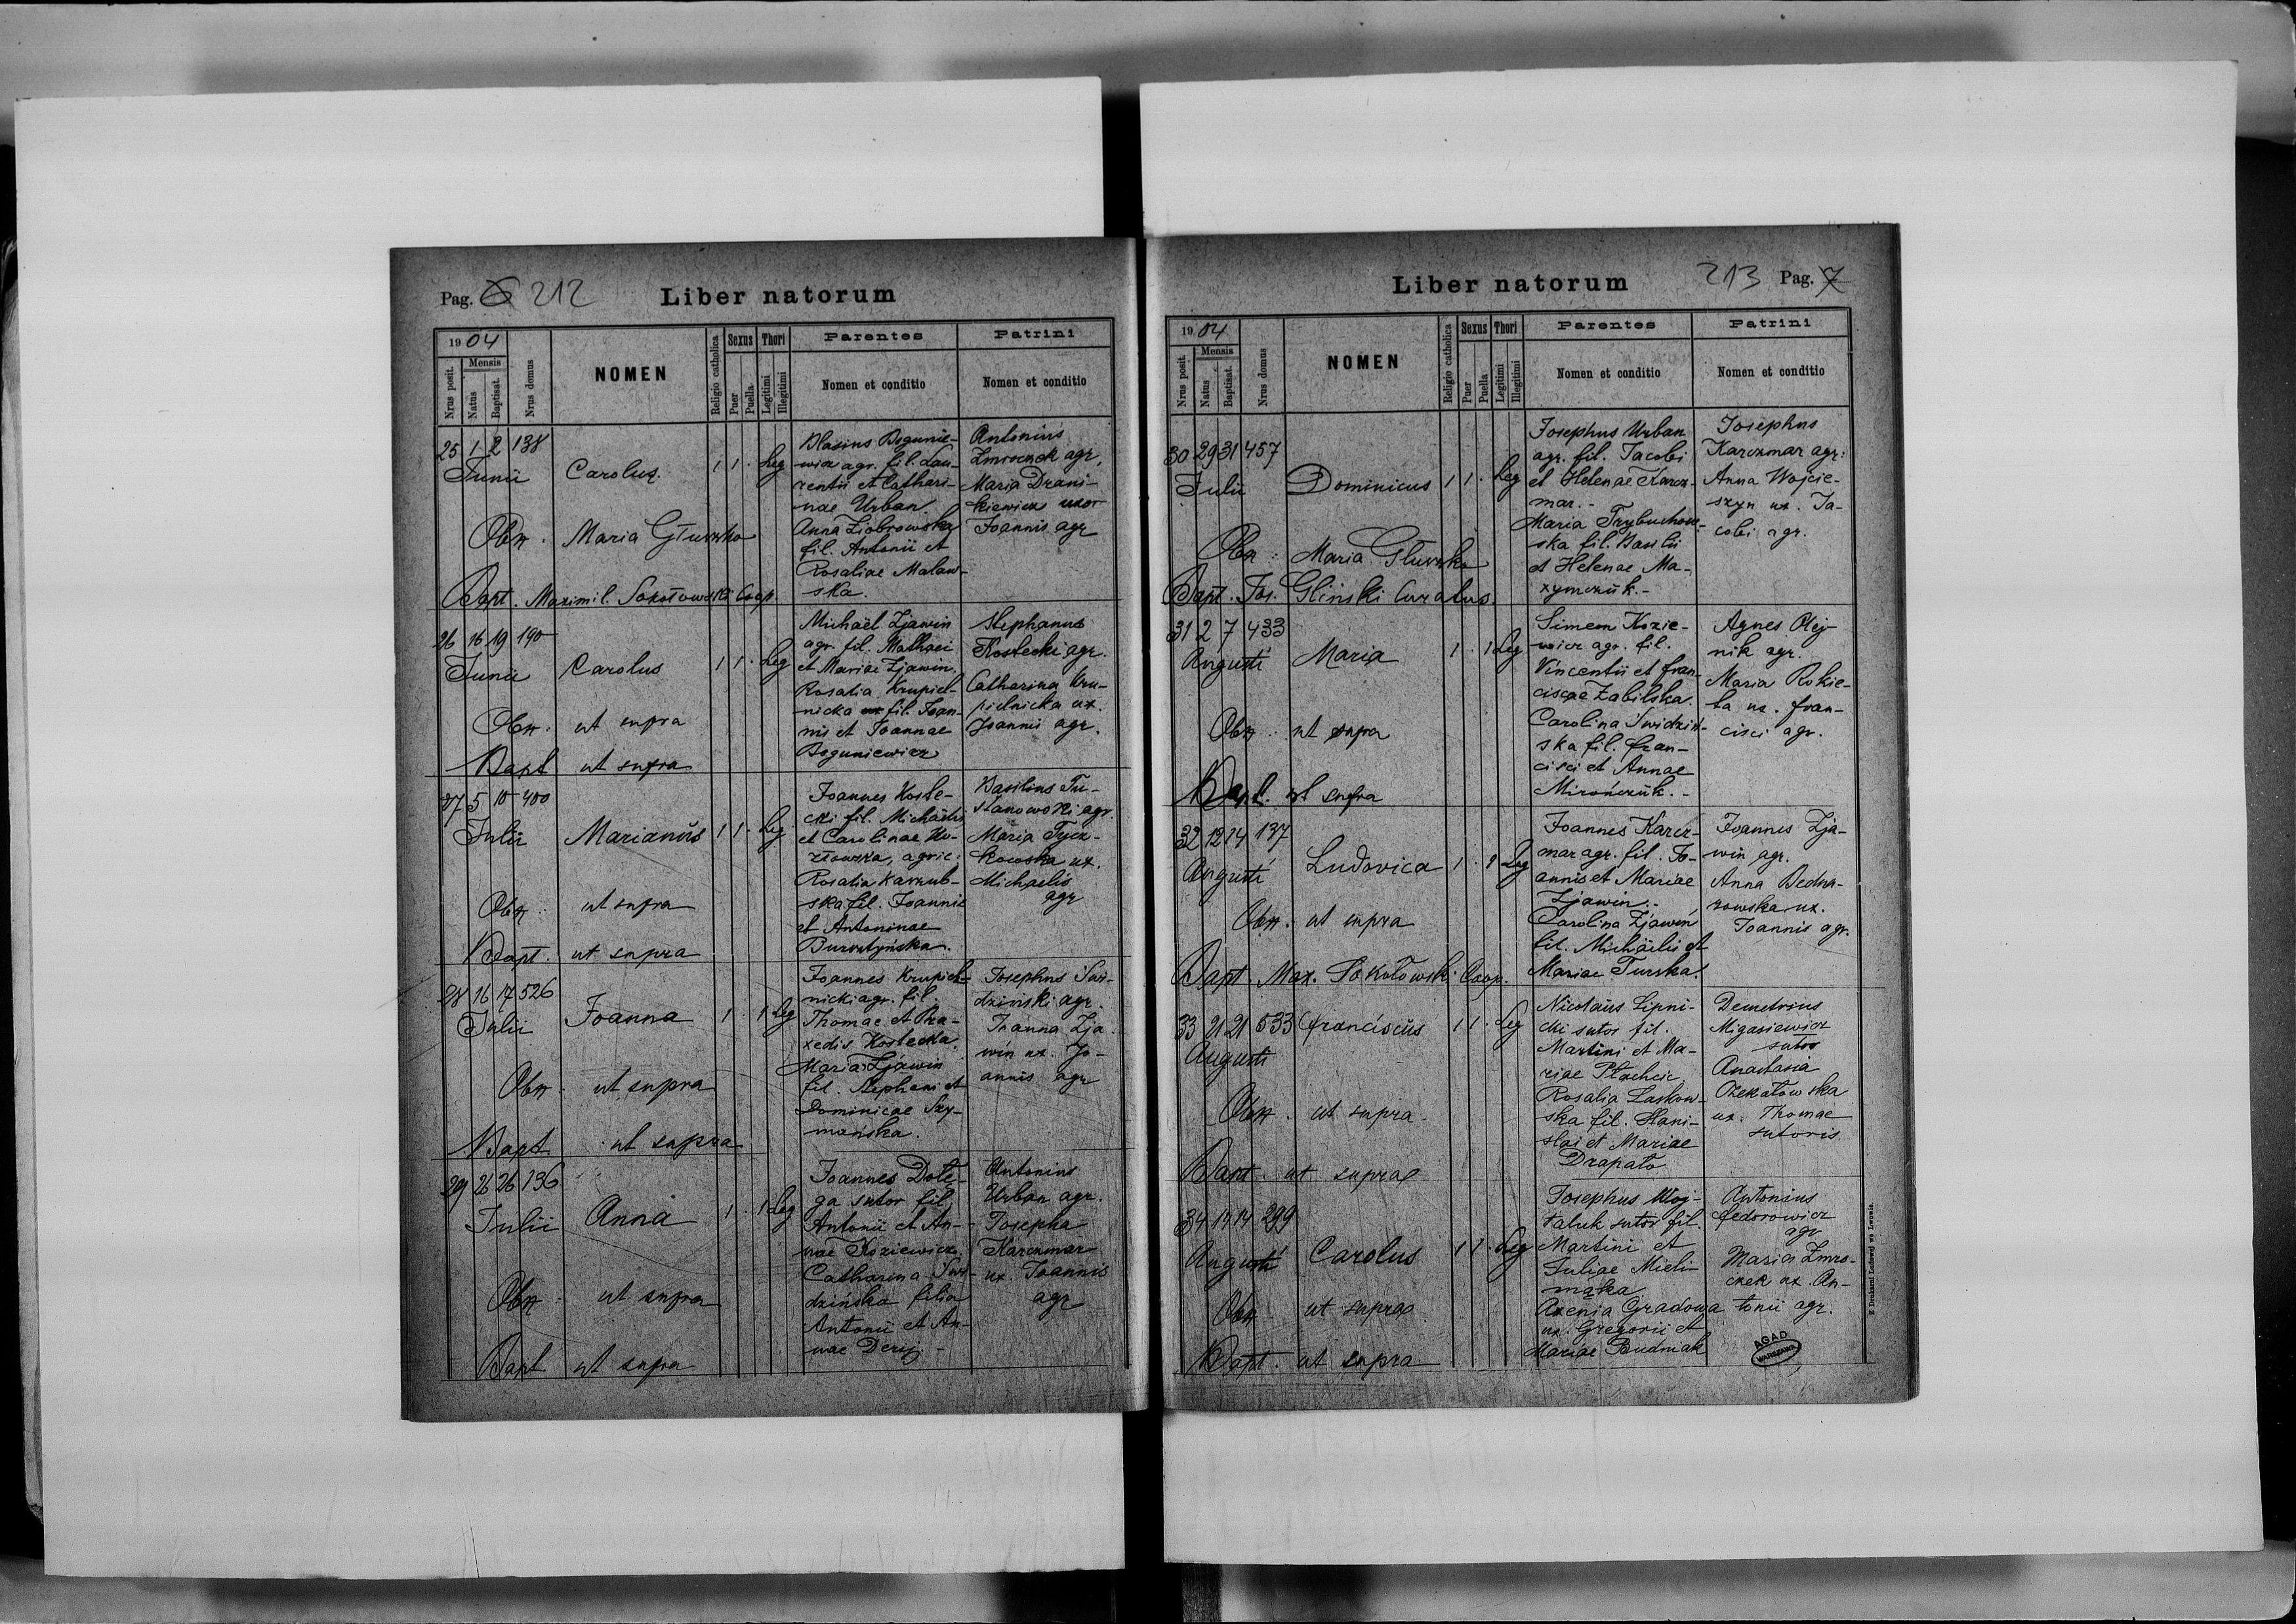 Pag. 6 212 Liber natorum
1904
Nrus posit.
Mensis
Natus
Baptisat.
Nrus domus
NOMEN
Religio catholica
Sexus
Puer
Puella
Thori
Legitimi
Illegitimi
Parentes
Nomen et conditio
Patrini
Nomen et conditio
25 1 2 138
Junii
Carolus.
1 1 · Leg
Blasius Bogunie-
wicz agr. fil. Lau-
rentii et Cathari-
nae Urban.
Anna Ziobrowska
fil. Antonii et
Rosaliae Malaw-
ska.
Antonius
Zmroczek agr.
Maria Drani-
kiewicz uxor
Joannis agr
Obst. Maria Głuszko
Bapt. Maximil. Sokołowski Coop.
26 16 19 190
Junii
Carolus
1 1 · Leg
Michael Zjawin
agr. fil. Mathaei
et Mariae Zjawin.
Rosalia Krupiel-
nicka fil. Joan-
nis et Joannae
Boguniewicz
Stephanus
Kostecki agr.
Catharina Kru-
pielnicka ux.
Joannis agr.
Obst. ut supra
Bapt ut supra
27 5 10 400
Julii
Marianus
1 1 · Leg
Joannes Koste-
cki fil. Michaelis
et Carolinae Ko-
złowska, agric.
Rosalia Kaszub-
ska fil. Joannis
et Antoninae
Bursztyńska.
Basilius Tu-
stanowski agr.
Maria Tycz-
kowska ux.
Michaelis
agr
Obst. ut supra
Bapt. ut supra
28 16 17 526
Julii
Joanna
1 · 1 Leg
Joannes Krupiel-
nicki agr. fil.
Thomae et Pra-
xedis Kostecka.
Maria Zjawin
fil. Stephani et
Dominicae Szy-
mańska.
Josephus Swi-
dziński agr.
Joanna Zja-
win ux. Jo-
annis agr
Obst. ut supra
Bapt ut supra
29 26 26 136
Julii
Anna
1 · 1 Leg
Joannes Dołę-
ga sutor fil.
Antonii et An-
nae Koziewicz.
Catharina Swi-
dzińska filia
Antonii et An-
nae Derij. -
Antonius
Urban agr.
Josepha
Karczmar
ux. Joannis
agr
Obst. ut supra
Bapt ut supra
Liber natorum 213 Pag. 7
1904
Nrus posit.
Mensis
Natus
Baptisat.
Nrus domus
NOMEN
Religio catholica
Sexus
Puer
Puella
Thori
Legitimi
Illegitimi
Parentes
Nomen et conditio
Patrini
Nomen et conditio
30 29 31 457
Julii
Dominicus
1 1 · Leg
Josephus Urban
agr. fil. Jacobi
et Helenae Karcz-
mar. -
Maria Trybuchow-
ska fil. Basilii
et Helenae Ma-
xymczuk. -
Josephus
Karczmar agr:
Anna Wojcie-
szyn ux. Ja-
cobi agr.
Obst: Maria Głuszko
Bapt. Jos. Glinski Curatus.
31 2 7 433
Augusti
Maria
1 · 1 Leg
Simeon Kozie-
wicz agr. fil.
Vincentii et Fran-
ciscae Zabilska.
Carolina Swidziń-
ska fil. Fran-
cisci et Annae
Mirończuk. -
Agnes Olej-
nik agr.
Maria Rokie-
ta ux. Fran-
cisci agr.
Obst: ut supra
Bapt. ut supra
32 12 14 137
Augusti
Ludovica
1 · 1 Leg
Joannes Karcz-
mar agr. fil. Jo-
annis et Mariae
Zjawin. -
Carolina Zjawin
fil. Michaelis et
Mariae Turska.
Joannes Zja-
win agr.
Anna Bedna-
rowska ux.
Joannis agr.
Obst. ut supra
Bapt. Max. Sokołowski Coop.
33 21 21 533
Augusti
Franciscus
1 1 · Leg
Nicolaus Lipni-
cki sutor fil.
Martini et Ma-
riae Płachcic
Rosalia Laskow-
ska fil. Stani-
slai et Mariae
Drapało
Demetrius
Migasiewicz
sutor
Anastasia
Czekałowska
ux. Thomae
sutoris
Obst. ut supra.
Bapt. ut supra
34 14 14 299
Augusti
Carolus
1 1 · Leg
Josephus Woj-
taluk sutor fil.
Martini et
Juliae Mieli-
mąka
Axenia Gradowa
ux. Gregorii et
Mariae Budniak
Antonius
Fedorowicz
agr
Maria Zmro-
czek ux. An-
tonii agr.
Obst ut supra
Bapt. ut supra
AGAD
WARSZAWA
Z Drukarni Ludowej we Lwowie.